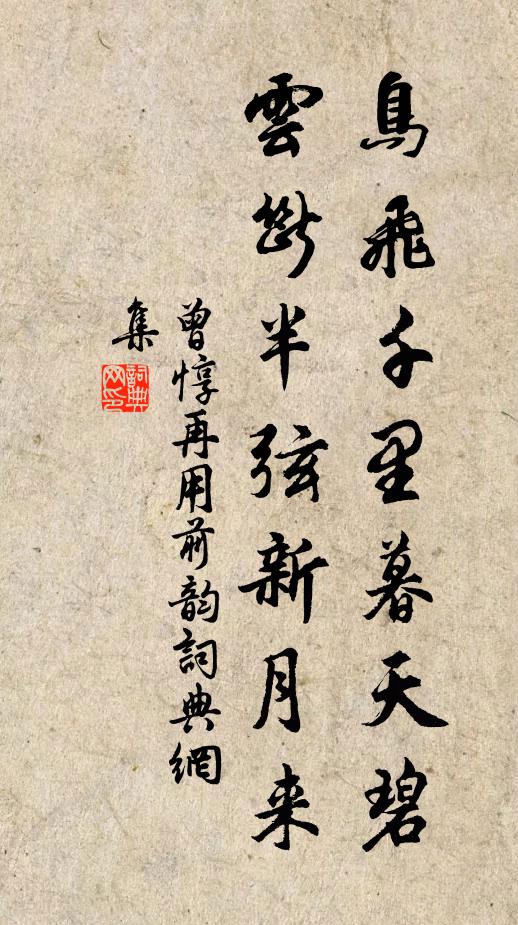 鳥飛千里暮天碧
雲断半弦新月来
曾惇再用前韵詞典網
集
詞典
网印